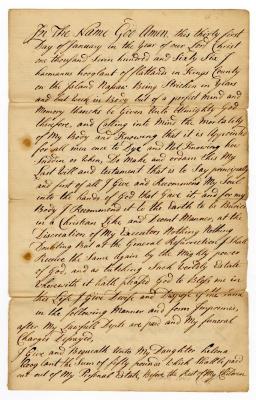 In The Name God Amen, this thirty first
Day of January in the year of our Lord Christ
one thousand Seven hundred and Sixty Six I
harmanus hooglant of flattands in Kings County
on the Island Nassau Being Stricken in Years
and but weak in Body but of a perfect mind and
Memory thancks be Given Unto Almighty God
therefore, and Calling into Mind the Mortality
of My Body and Knowing that it is Appointed
for all men once to Dye and Not Knowing how
Sudden or When, Do Make and ordain this My
Last Will and testament that is to Say principaly
and first of all I Give and Recommend My Soul
into the hands of God that Gave it, and for my
Body I Recommend it to the Earth to be Buried
in a Christian Like, and Decent Manner, at the
Discreation of My Executors Nothing
Doubting But at the General Resurrection I Shall
Receive the Same Again by the Mighty power
of God, and as tutching Such Worldly Estate
Wherewith it hath pleased God to Bless me in
this Life I Give Devise and Dispose of the same
in the following Manner and form Imprimes,
after My Lawfull Depts are paid and My funeral
Charges Defrayed,
I Give and Bequeath Unto My Daughter helena
Hooglant the Sum of fifty pounds Which Shall be paid
out of My Personal Estate, Before the Rest of My Children